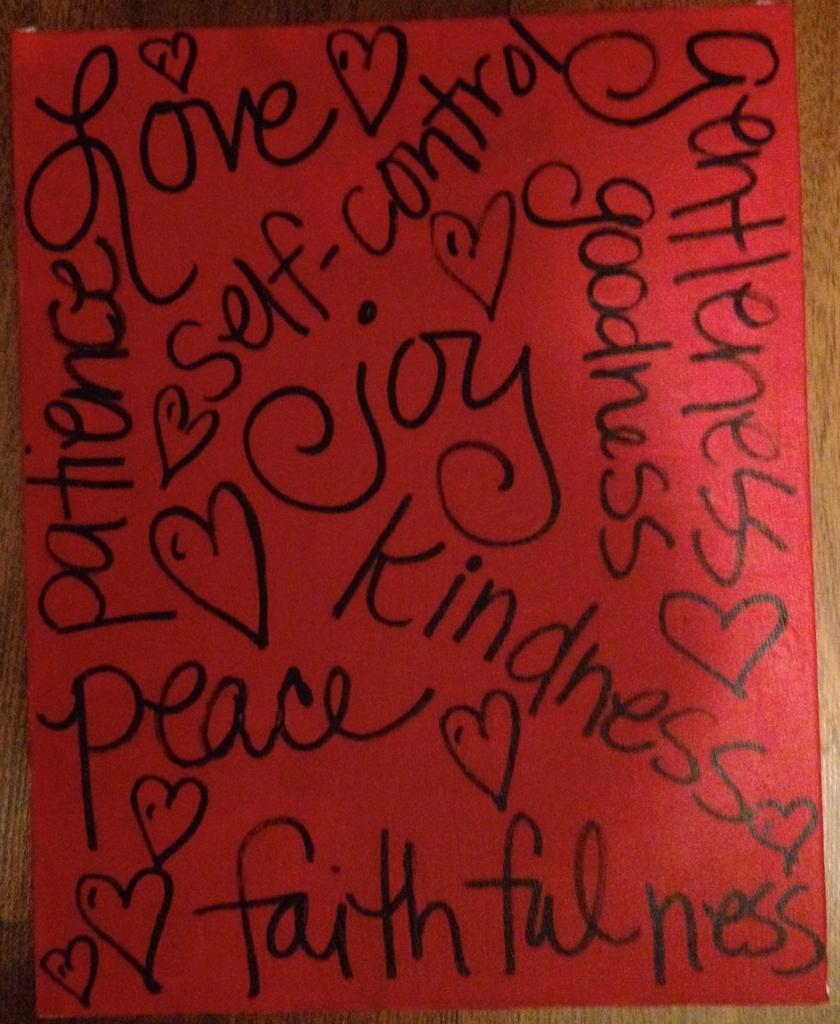 Love
self-control
Gentleness
goodness
patience
joy
kindness
peace
faithfulness